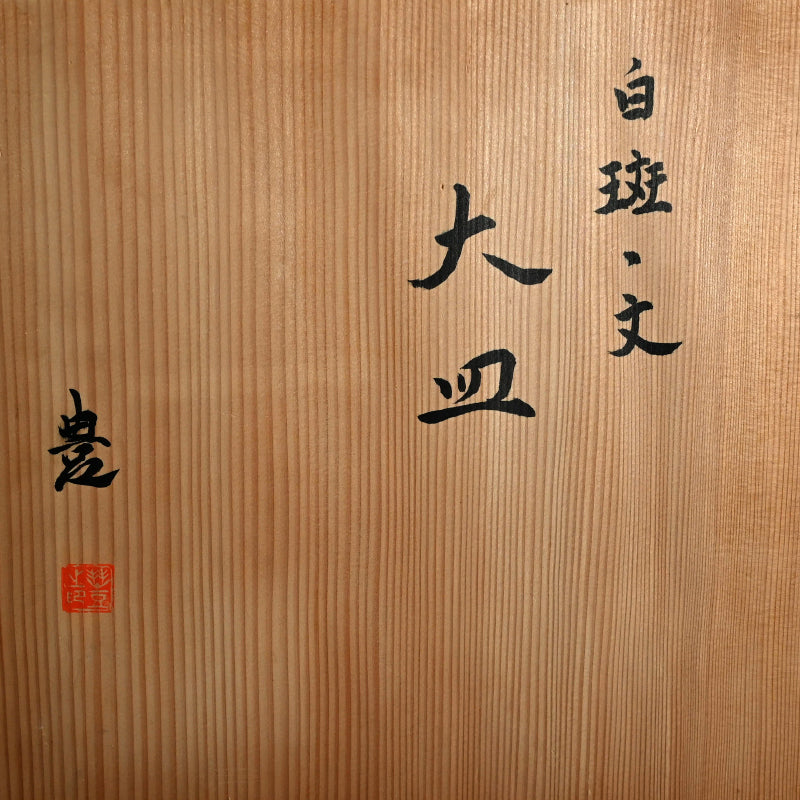 白斑、文
大皿
豊